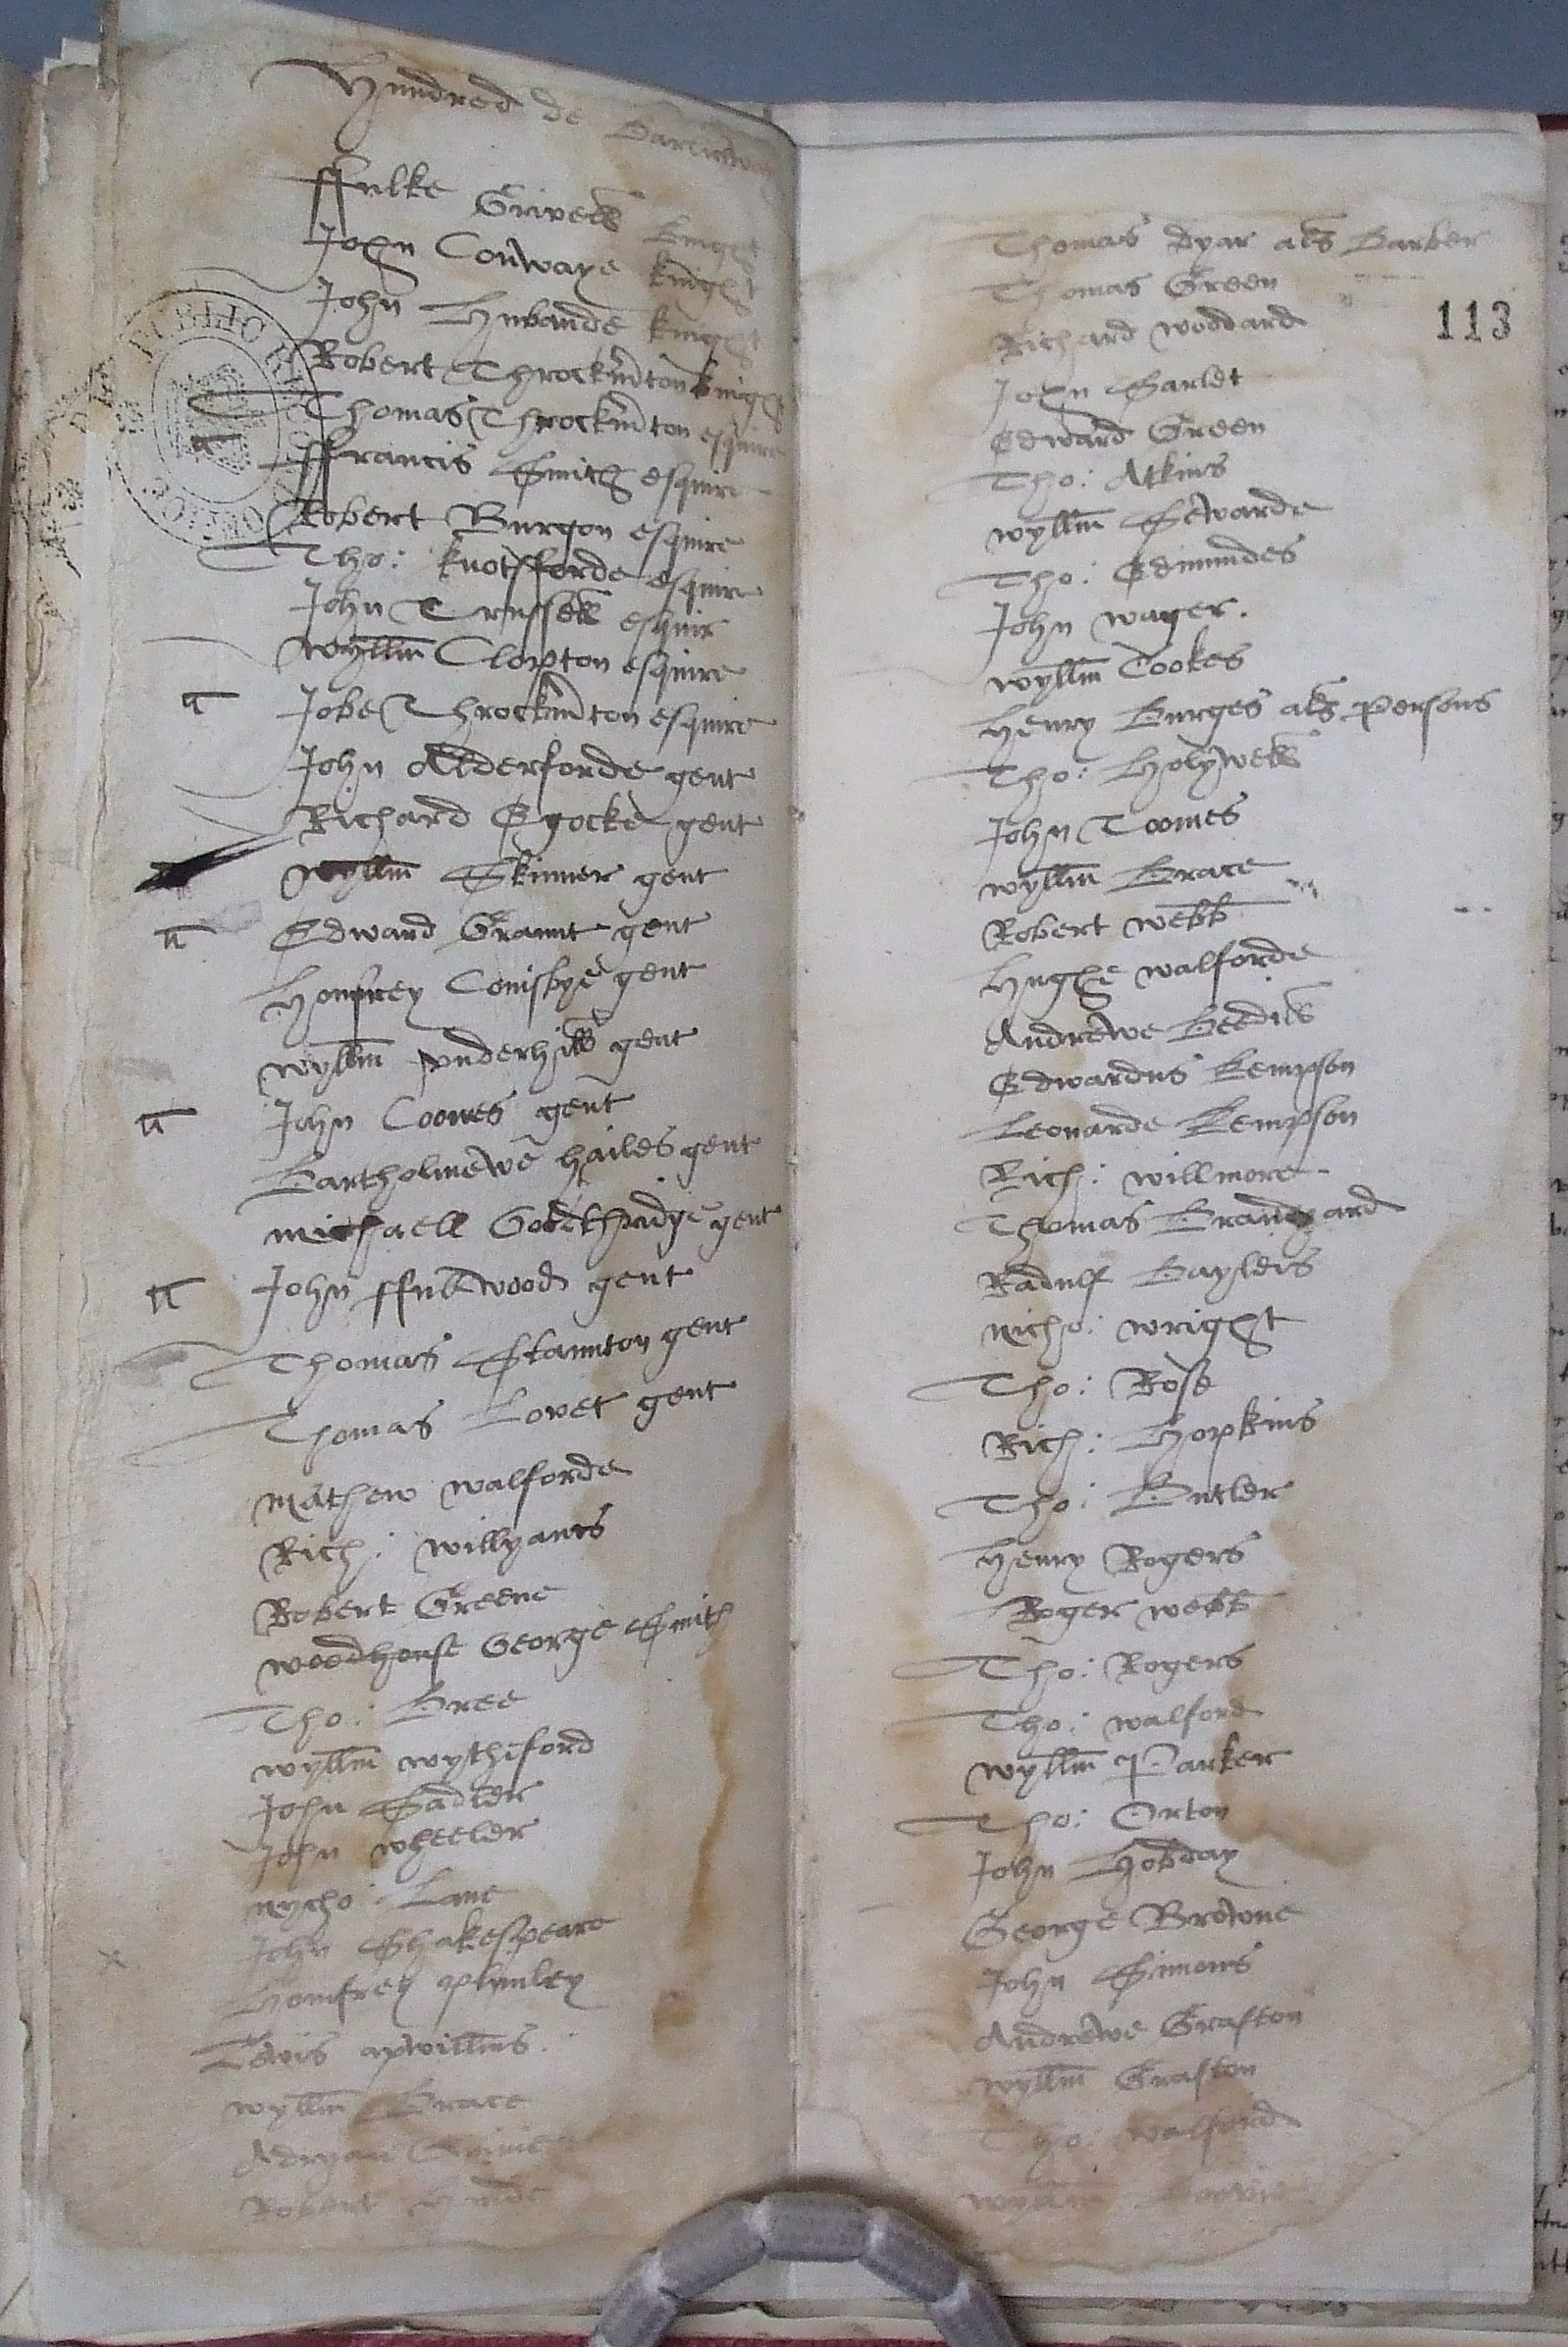 Hundred de Barlichway
ffulke Grivell knight
John Conwaye knight
John Hubande knight
Robert Throckm̄ton knight
Thomas Throckm̄ton esquire
ffrancis Smith esquire
Robert Burgon esquire
Tho: knotsfforde esquire
John Trussell esquir
wyllm̄ Clopton esquire
Jobe Throckm̄ton esquire
John Alderforde gent
Richard Egocke gent
wyllm̄ Skinner gent
Edward Graunt gent
Homfrey Conisbye gent
wyllm̄ vnderhill gent
John Coomes gent
Bartholmewe hailes gent
michaell gent
John ffullwood gent
Thomas Staunton gent
Thomas Lovet gent
mathew walforde
Rich: willyams
Robert Greene
woodhouse George Smith
Tho: Bree
wyllm̄ wythiford
John Sadler
John wheeler
nycho: Lane
John Shakespeare
Homfrey plumley
Lewis apwillms.
wyllm̄ Brace
Adryan
Robert
PUBLIC RECORD OFFICE
Thomas Dyar als Barber
Thomas Green
Richard woddard
113
John Sarlet
Edward Green
Tho: Atkins
wyllm̄ Sewarde
Tho: Edmundes
John wager.
wyllm̄ Cookes
Henry Burges als Persons
Tho: Holywell
John Toomes
wyllm̄ Brace
Robert webb
Hughe walforde
Andrewe
Edwardus kempson
Leonarde kempson
Rich: willmore
Thomas
Radulf Bayleis
nicho: wright
Tho: Rose
Rich: Hopkins
Tho: Butler
Henry Rogers
Roger webb
Tho: Rogers
Tho: walford
wyllm̄ Parker
Tho: Orton
John Hobday
George Browne
John Simons
Andrewe Grafton
wyllm̄ Grafton
Tho: walford
wyllm̄